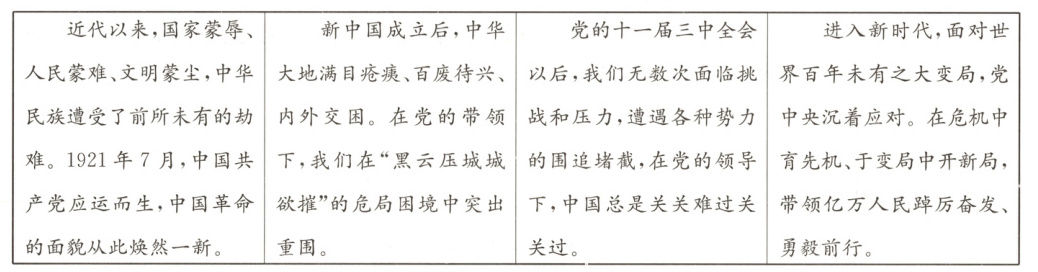 近代以来,国家蒙辱、
人民蒙难、文明蒙尘,中华
民族遭受了前所未有的劫
难。1921年7月,中国共
产党应运而生,中国革命
的面貌从此焕然一新。
新中国成立后,中华
大地满目疮痍、百废待兴、
内外交困。在党的带领
下,我们在“黑云压城城
欲摧”的危局困境中突出
重围。
党的十一届三中全会
以后,我们无数次面临挑
战和压力,遭遇各种势力
的围追堵截,在党的领导
下,中国总是关关难过关
关过。
进入新时代,面对世
界百年未有之大变局,党
中央沉着应对。在危机中
育先机、于变局中开新局,
带领亿万人民踔厉奋发、
勇毅前行。